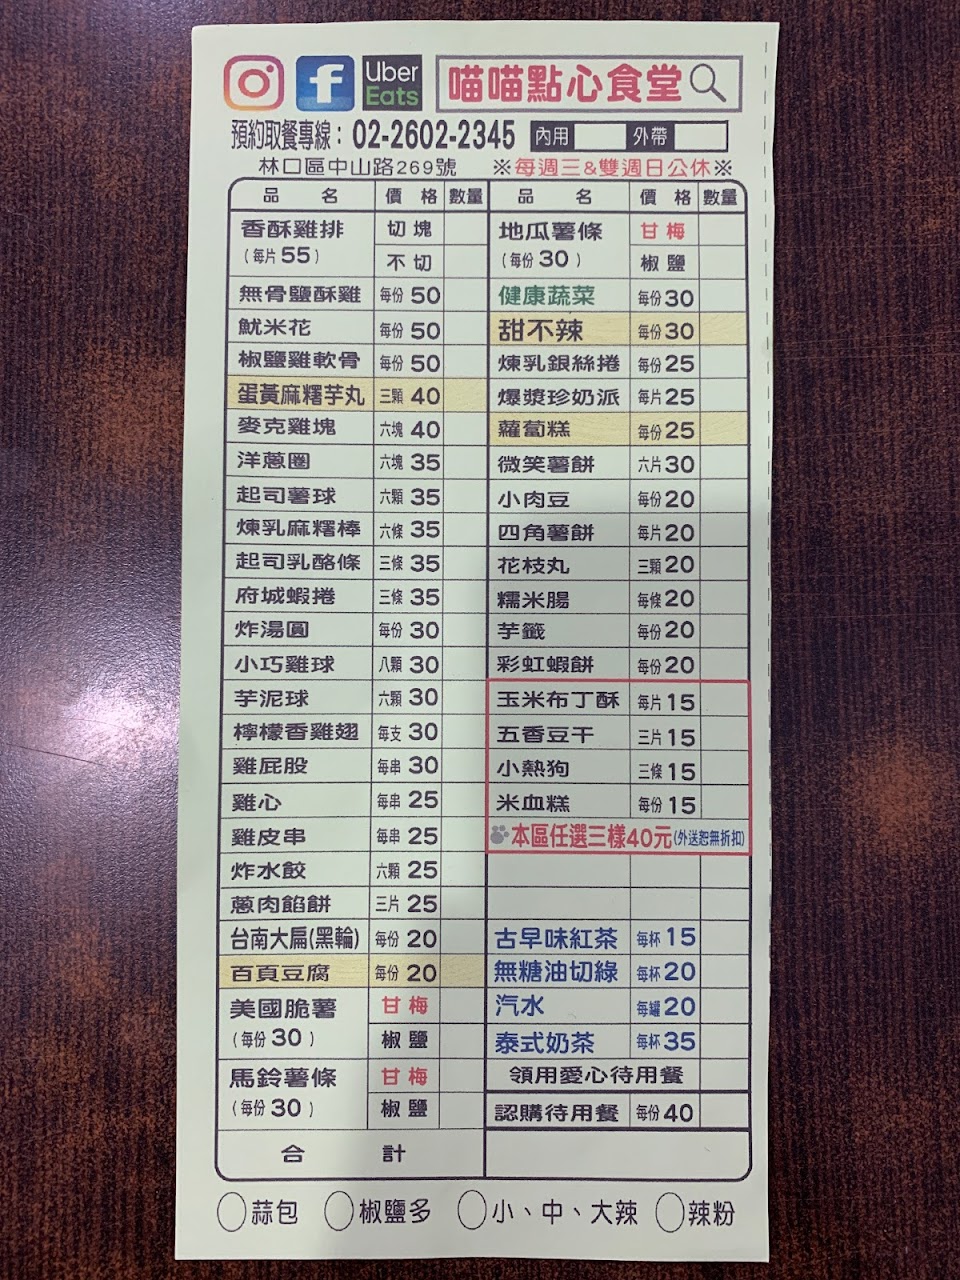 Uber Eats 喵喵點心食堂
預約取餐專線：02-2602-2345 內用 外帶
林口區中山路269號 ※每週三&雙週日公休※
品名 價格 數量 品名 價格 數量
香酥雞排 (每片55) 切塊 不切
地瓜薯條 (每份30) 甘梅 椒鹽
無骨鹽酥雞 每份50 健康蔬菜 每份30
魷米花 每份50 甜不辣 每份30
椒鹽雞軟骨 每份50 煉乳銀絲捲 每份25
蛋黃麻糬芋丸 三顆40 爆漿珍奶派 每片25
麥克雞塊 六塊40 蘿蔔糕 每份25
洋蔥圈 六塊35 微笑薯餅 六片30
起司薯球 六顆35 小肉豆 每份20
煉乳麻糬棒 六條35 四角薯餅 每片20
起司乳酪條 三條35 花枝丸 三顆20
府城蝦捲 三條35 糯米腸 每條20
炸湯圓 每份30 芋籤 每份20
小巧雞球 八顆30 彩虹蝦餅 每份20
芋泥球 六顆30 玉米布丁酥 每片15
檸檬香雞翅 每支30 五香豆干 三片15
雞屁股 每串30 小熱狗 三條15
雞心 每串25 米血糕 每份15
雞皮串 每串25 本區任選三樣40元(外送恕無折扣)
炸水餃 六顆25
蔥肉餡餅 三片25
台南大扁(黑輪) 每份20 古早味紅茶 每杯15
百頁豆腐 每份20 無糖油切綠 每杯20
美國脆薯 (每份30) 甘梅 椒鹽
汽水 每罐20
泰式奶茶 每杯35
馬鈴薯條 (每份30) 甘梅 椒鹽
領用愛心待用餐
認購待用餐 每份40
合計
蒜包 椒鹽多 小、中、大辣 辣粉